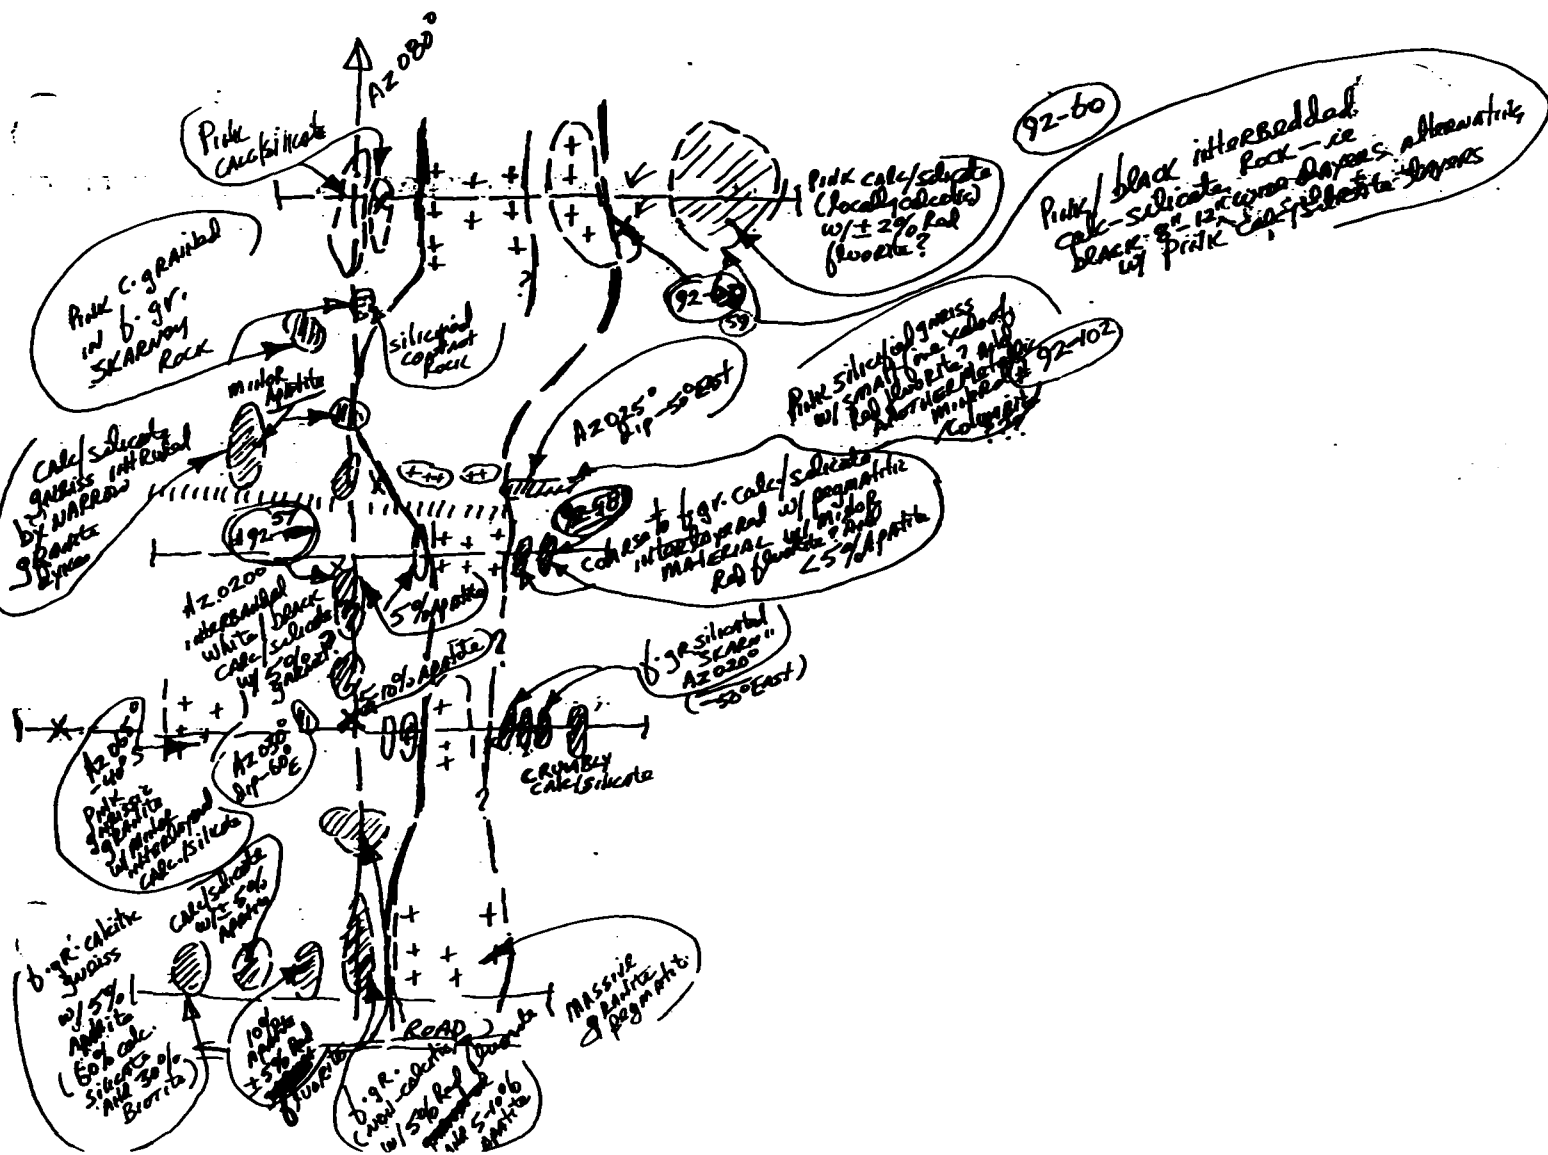 AZ 080°
Pink
calc/silicate
92-60
Pink/black interbedded
calc-silicate Rock - ie
black 8"-12" wide layers alternating
w/ pink calc/silicate layers
Pink calc/silicate
(locally calcitic)
w/ ± 2% Red
fluorite?
92-
59
Pink c. grained
in f. gr.
SKARNEY
ROCK
silicified
contact
Rock
minor
apatite
AZ 025°
dip -50° East
Pink silicified gneiss
w/ small
Red fluorite? and
another metallic
mineral
columbite
???
92-102
calc/silicate
gneiss intruded
by NARROW
granite
dykes
92-57
92-98
coarse to f. gr. calc/silicate
interlayered w/ pegmatitic
MATERIAL w/ minor
Red fluorite? and
<5% Apatite
AZ 020°
interbanded
white/black
calc/silicate
w/ 50%
garnet?
5% Apatite
5-10% Apatite
?
f. gr silicified
SKARN"
AZ 020°
(-50° East)
AZ 005°
-40°
Pink
gneissic
granite
w/ minor
interlayered
calc/silicate
AZ 030°
dip -60°
E
CRUMBLY
calc/silicate
?
calc/silicate
w/ ± 5%
apatite
f. gR. calcitic
gneiss
w/ 5%
Apatite
(60% calc.
silicate
AND 30%
BIOTITE)
10%
Apatite
± 5% Red
fluorite
ROAD
f. gR.
(NON-calcitic)
w/ 5% Red
fluorite
AND 5-10%
apatite
MASSIVE
granite
pegmatite